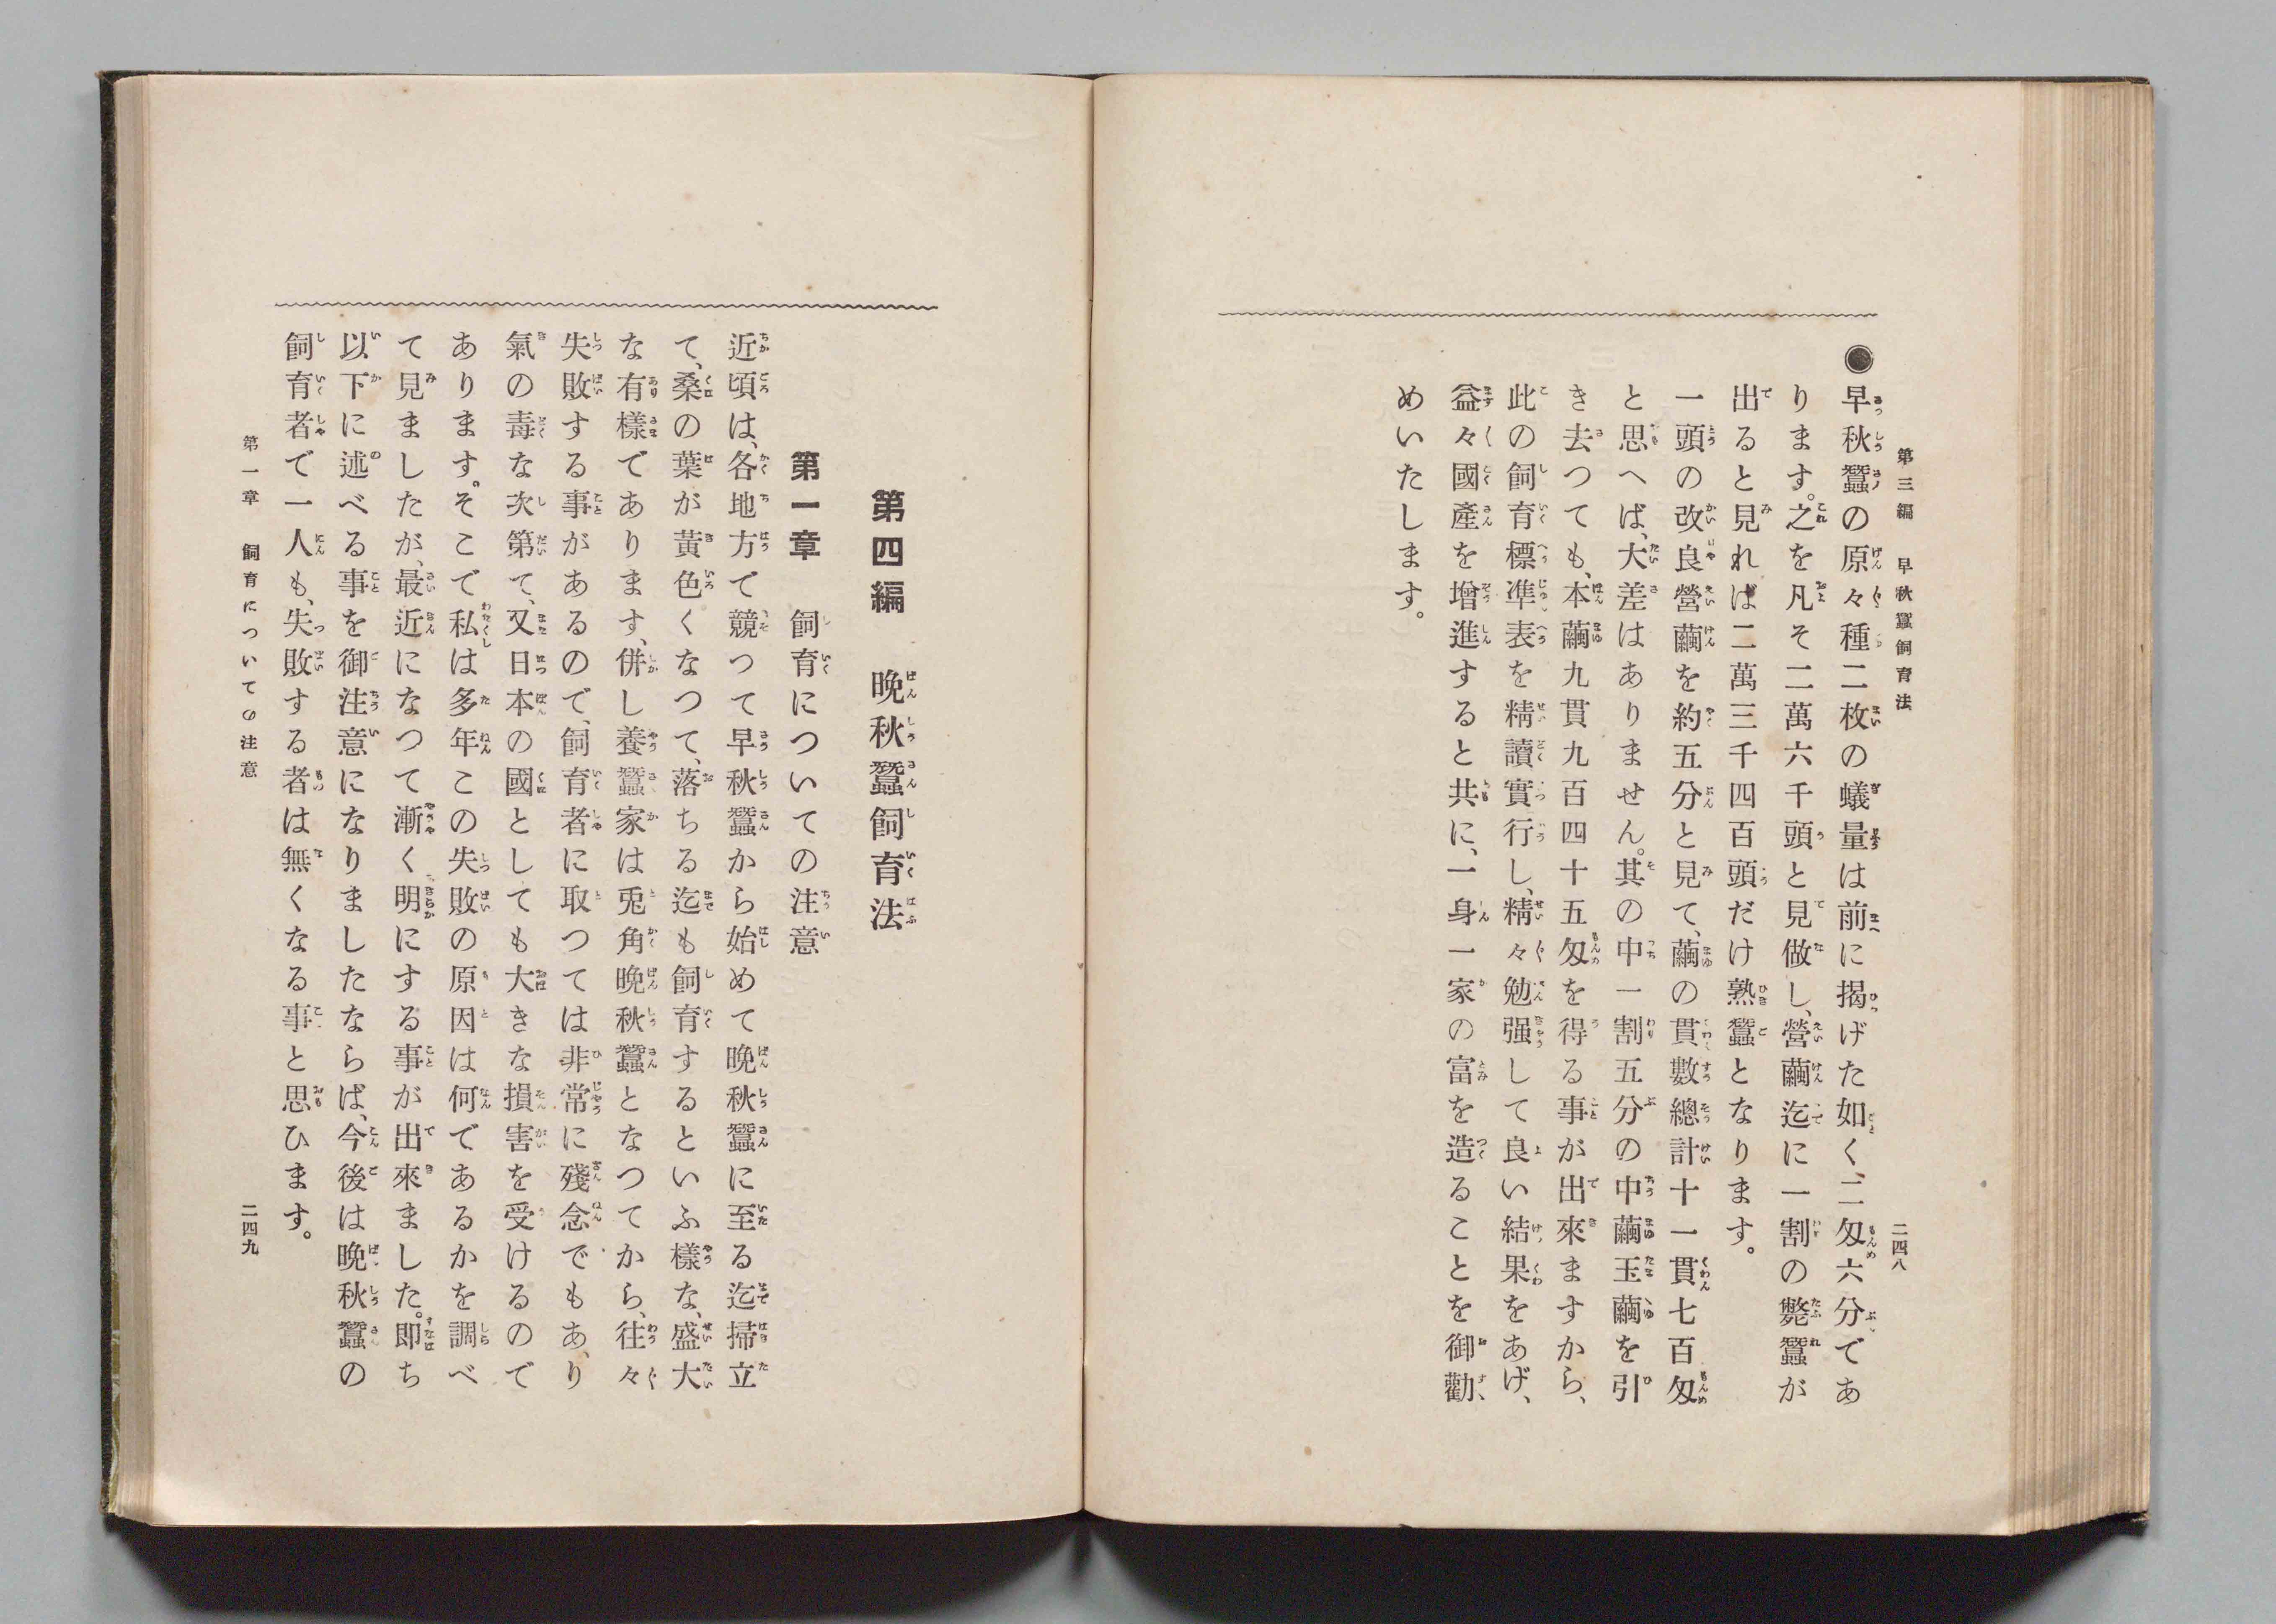 第三編　早秋蠶飼育法
二四八
●早秋蠶の原々種二枚の蟻量は前に揭げた如く、二匁六分であ
ります。之を凡そ二萬六千頭と見做し、營繭迄に一割の斃蠶が
出ると見れば二萬三千四百頭だけ熟蠶となります。
一頭の改良營繭を約五分と見て、繭の貫數總計十一貫七百匁
と思へば、大差はありません。其の中一割五分の中繭玉繭を引
き去つても、本繭九貫九百四十五匁を得る事が出來ますから、
此の飼育標準表を精讀實行し、精々勉强して良い結果をあげ、
益々國產を增進すると共に、一身一家の富を造ることを御勸
めいたします。
第四編　晩秋蠶飼育法
第一章　飼育についての注意
近頃は、各地方で競つて早秋蠶から始めて晩秋蠶に至る迄掃立
て、桑の葉が黃色くなつて、落ちる迄も飼育するといふ樣な、盛大
な有樣であります、併し養蠶家は兎角晩秋蠶となつてから、往々
失敗する事があるので、飼育者に取つては非常に殘念でもあ、り
氣の毒な次第で、又日本の國としても大きな損害を受けるので
あります。そこで私は多年この失敗の原因は何であるかを調べ
て見ましたが、最近になつて漸く明にする事が出來ました。卽ち
以下に述べる事を御注意になりましたならば、今後は晩秋蠶の
飼育者で一人も、失敗する者は無くなる事と思ひます。
第一章　飼育についての注意
二四九